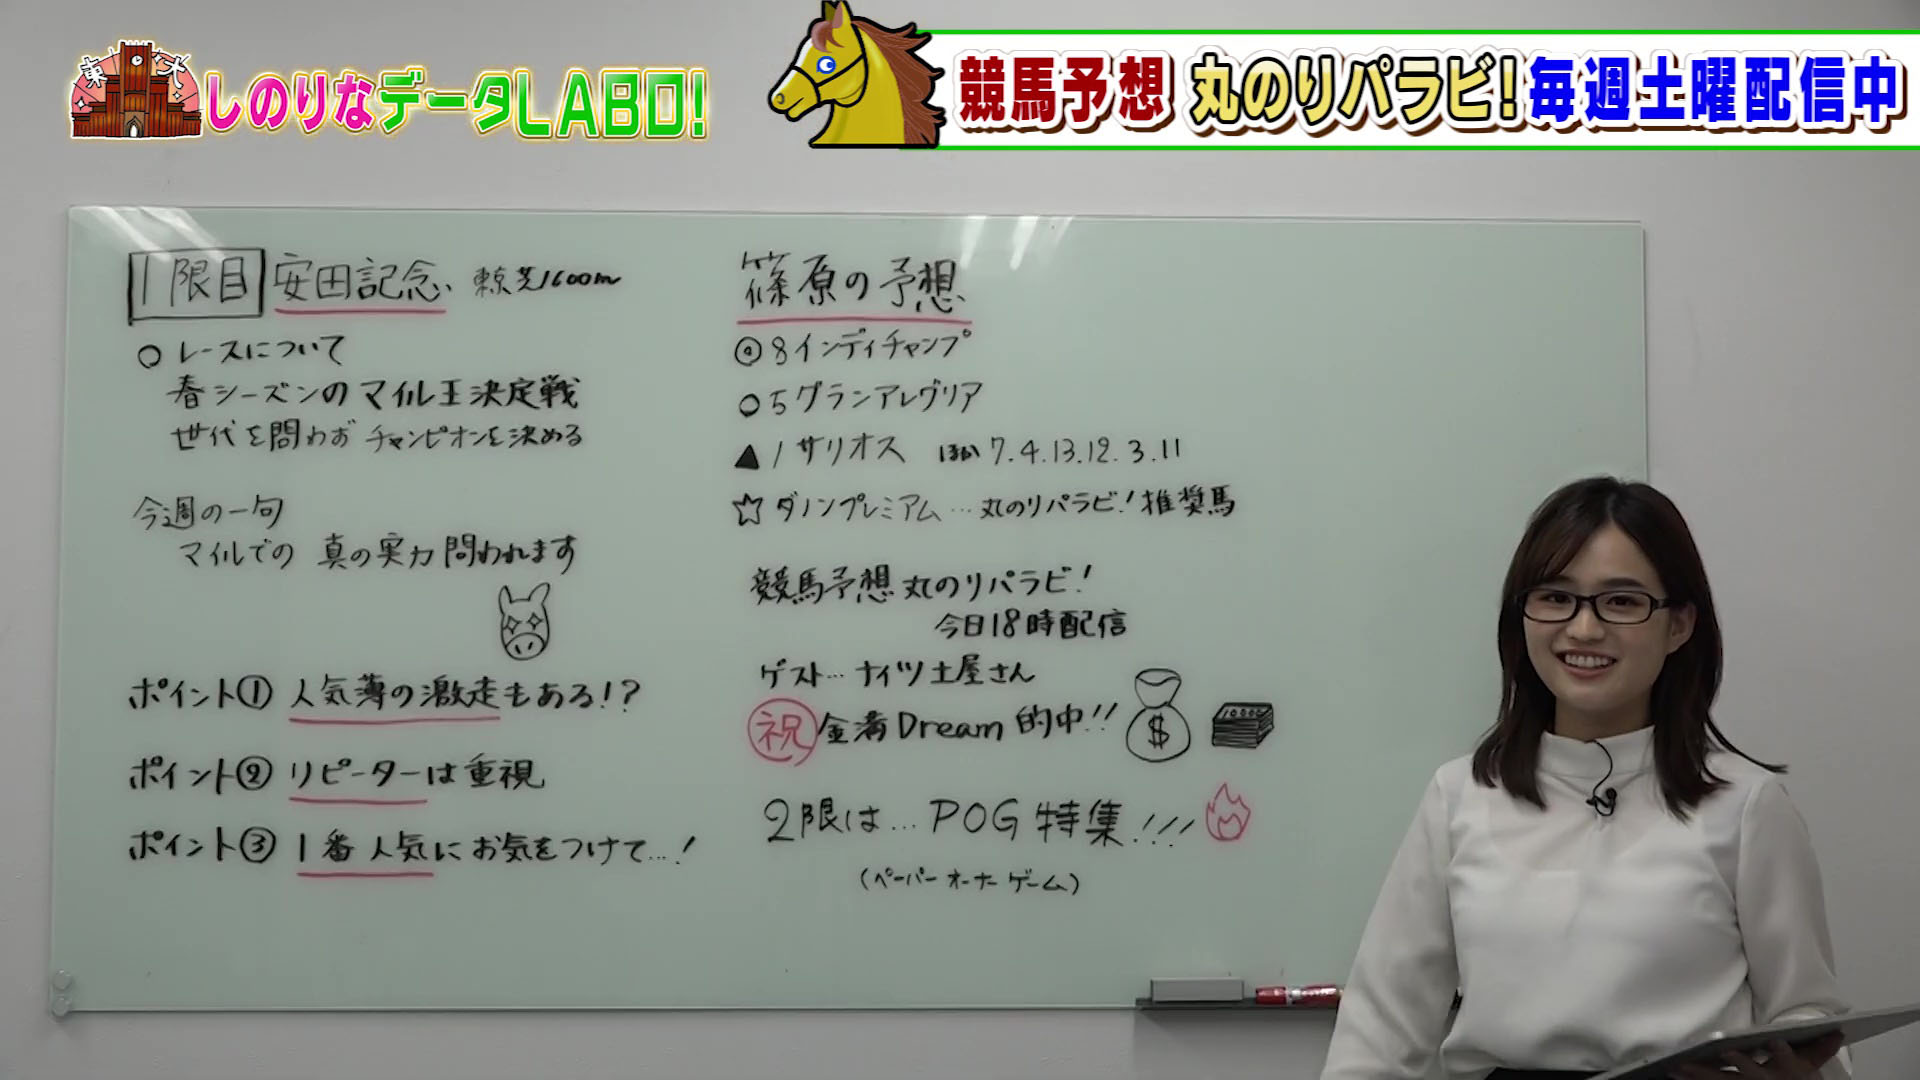 東大
しのりなデータLABO!
競馬予想 丸のりパラビ!毎週土曜配信中
1限目 安田記念 東京芝1600m
○ レースについて
春シーズンのマイル王決定戦
世代を問わずチャンピオンを決める
今週の一句
マイルでの 真の実力 問われます
ポイント① 人気薄の激走もある!?
ポイント② リピーターは重視
ポイント③ 1番人気にお気をつけて…!
篠原の予想
◎8インディチャンプ
○5グランアレグリア
▲1サリオス ほか7.4.13.12.3.11
☆ダノンプレミアム…丸のりパラビ!推奨馬
競馬予想 丸のりパラビ!
今日18時配信
ゲスト…ナイツ土屋さん
祝 金満Dream的中!!
$
2限は…POG特集!!!
(ペーパーオーナーゲーム)